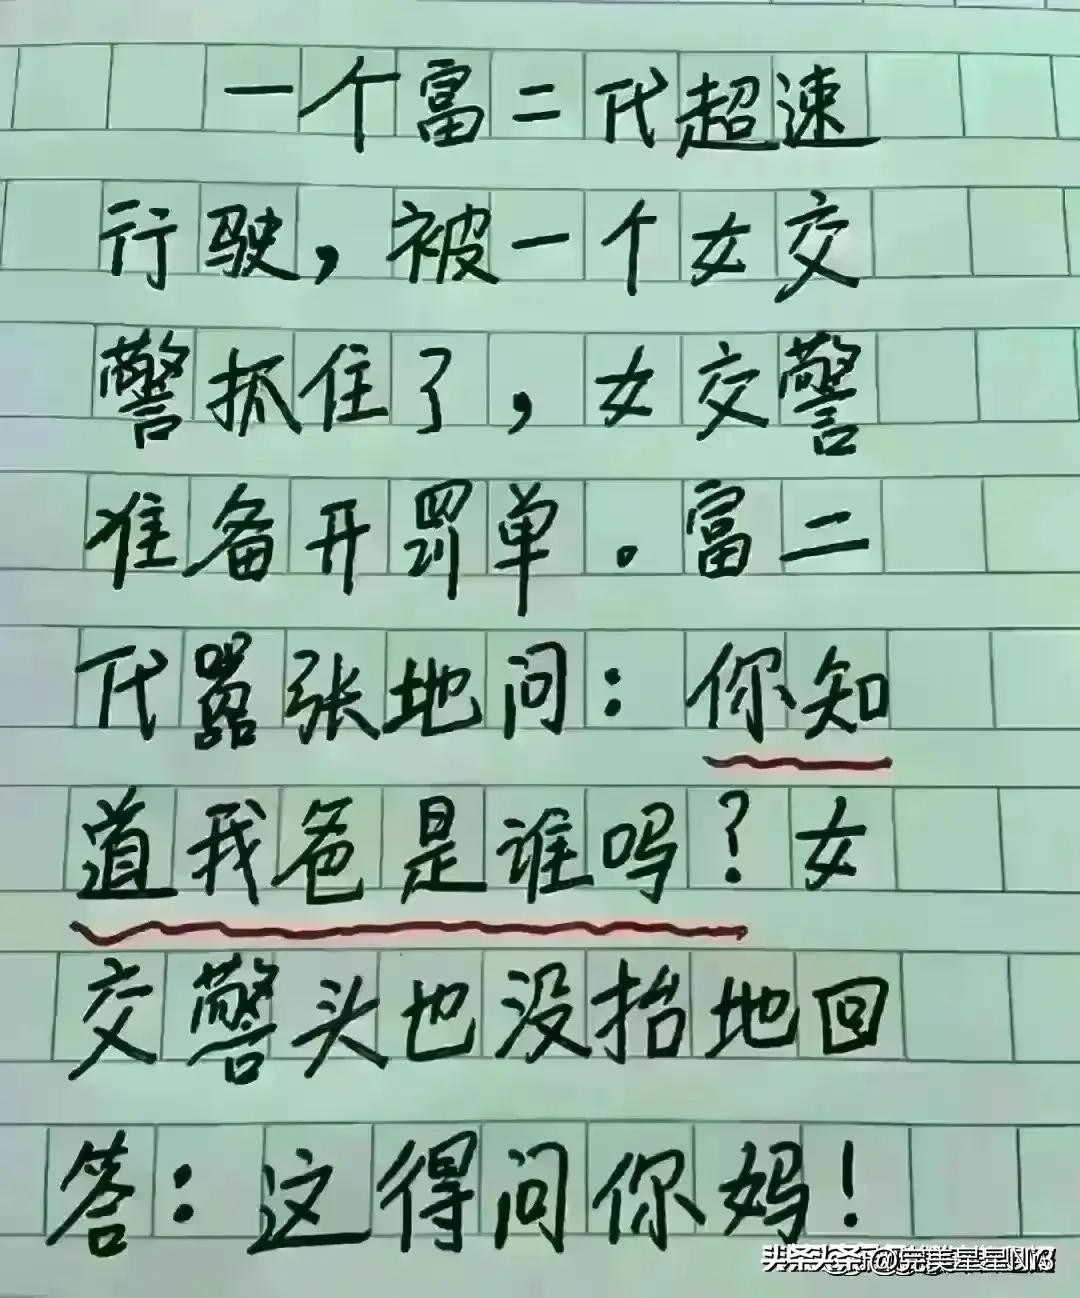 一个富二代超速
行驶，被一个女交
警抓住了，女交警
准备开罚单。富二
代嚣张地问：你知
道我爸是谁吗？女
交警头也没抬地回
答：这得问你妈！
头条 @完美星星